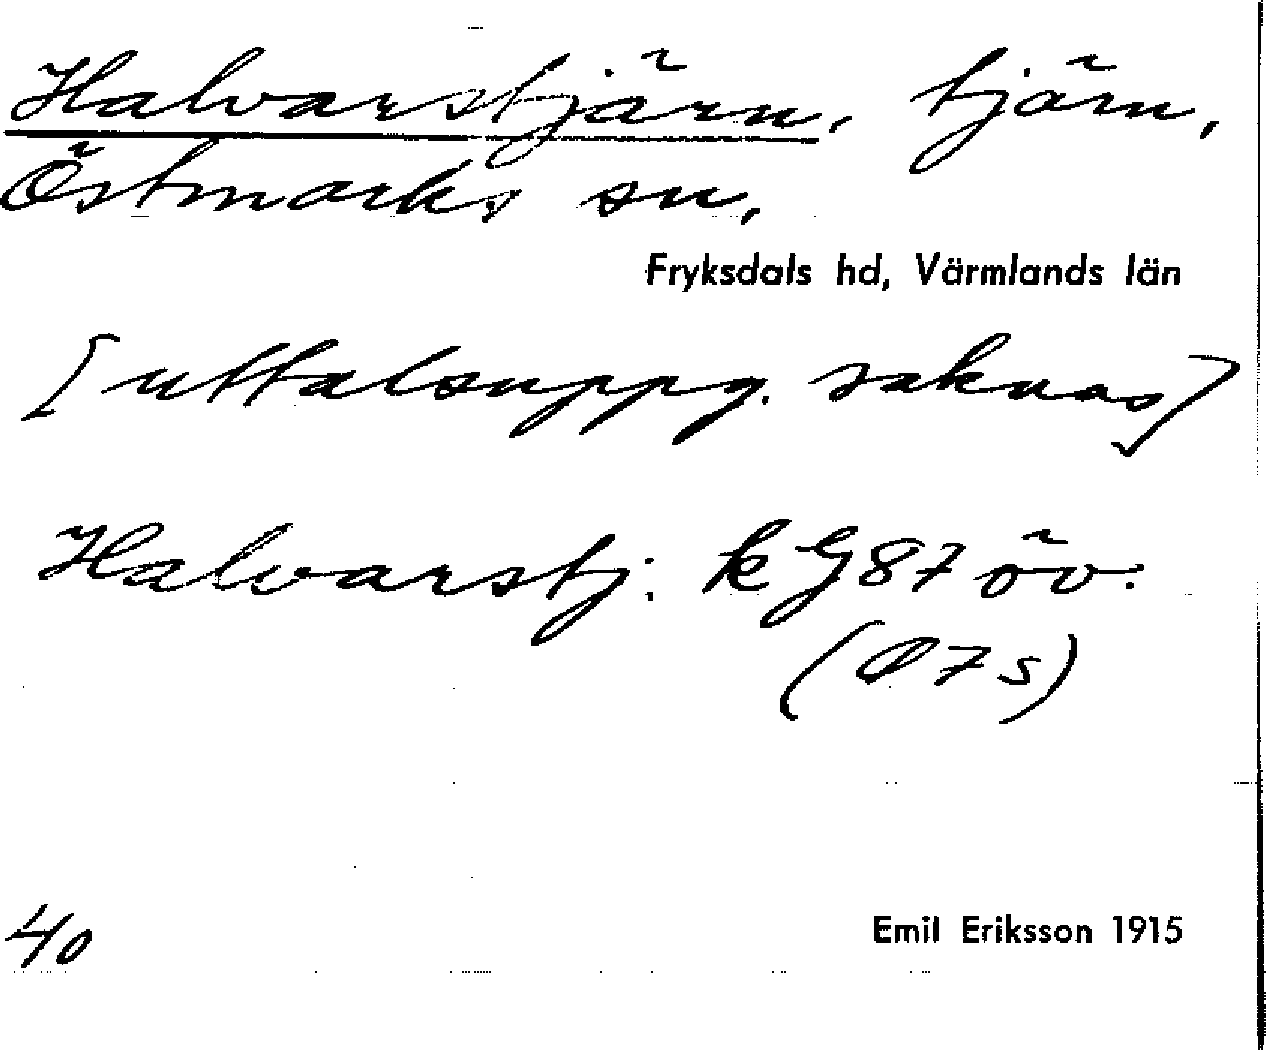 Halvarstjärn, tjärn,
Östmarks sn,
Fryksdals hd, Värmlands län
[uttalsuppg. saknas]
Halvarstj: kG87 öv.
(Ø7s)
40
Emil Eriksson 1915